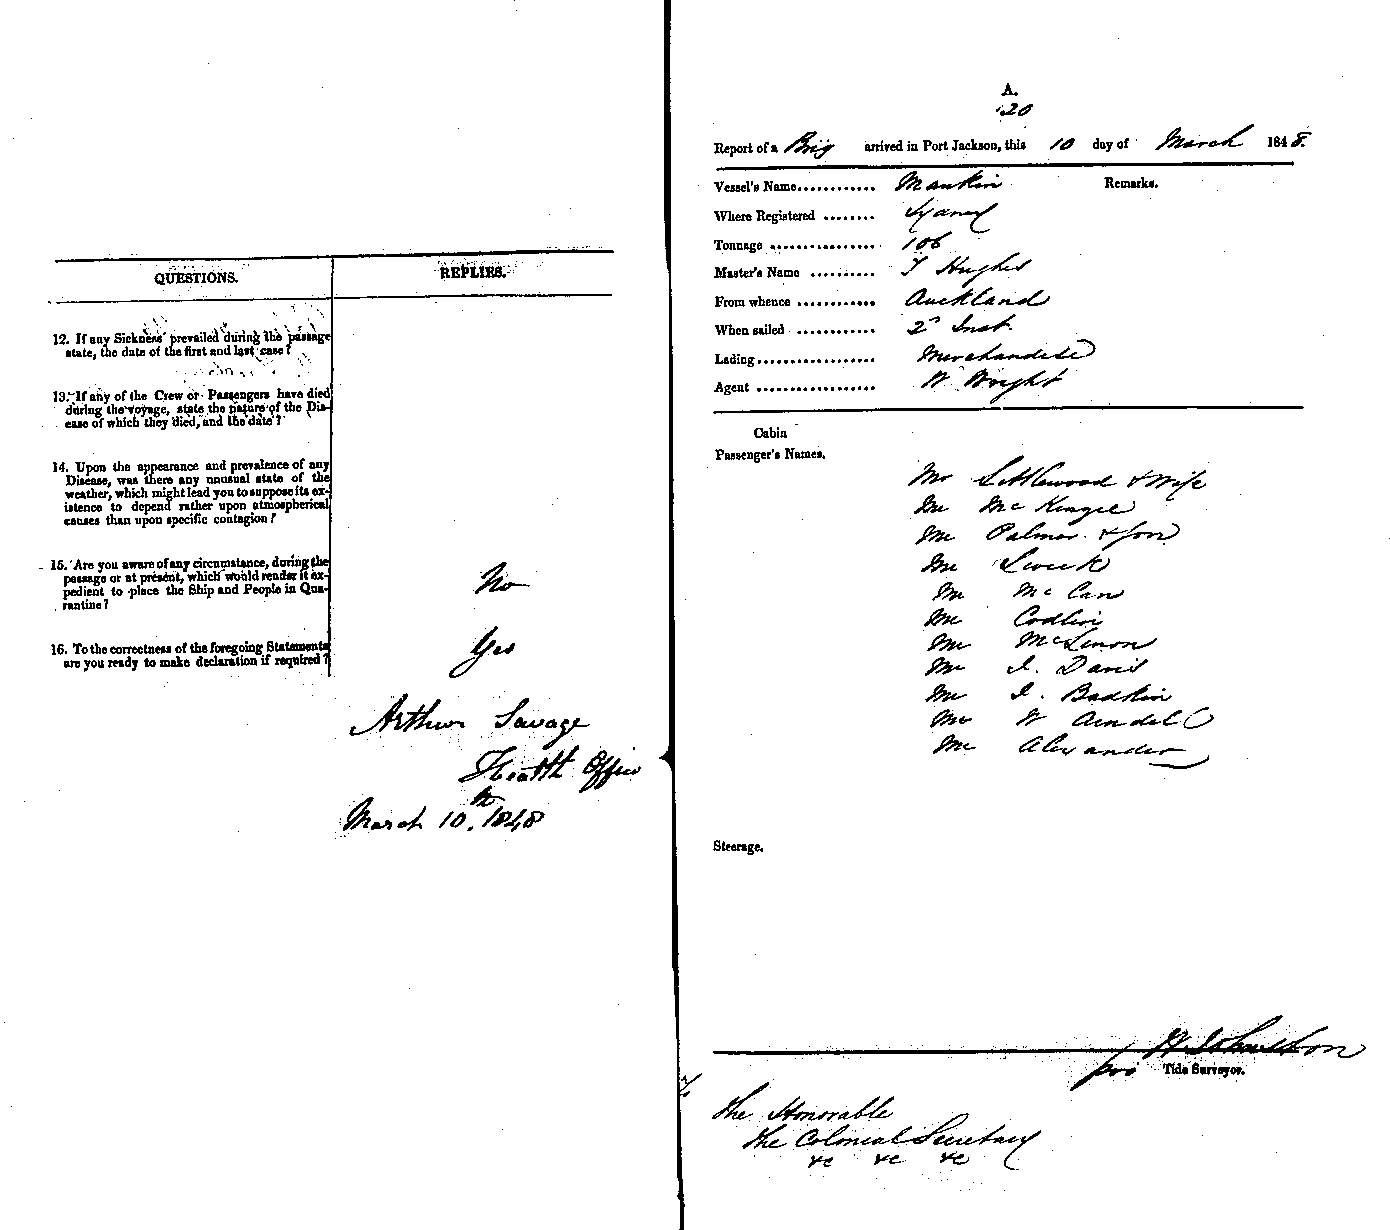 QUESTIONS.
REPLIES.
12. If any Sickness prevailed during the passage
state, the date of the first and last case?
13. If any of the Crew or Passengers have died
during the voyage, state the nature of the Dis-
ease of which they died, and the date?
14. Upon the appearance and prevalence of any
Disease, was there any unusual state of the
weather, which might lead you to suppose its ex-
istence to depend rather upon atmospherical
causes than upon specific contagion?
15. Are you aware of any circumstance, during the
passage or at present, which would render it ex-
pedient to place the Ship and People in Qua-
rantine?
No
16. To the correctness of the foregoing Statements
are you ready to make declaration if required?
Yes
Arthur Savage
Health Officer
March 10th. 1848
A.
20
Report of a Brig arrived in Port Jackson, this 10 day of March 1848.
Vessel's Name............ Maukin Remarks.
Where Registered ........ Sydney
Tonnage ................ 106
Master's Name .......... T Hughes
From whence ............ Auckland
When sailed ............ 2d Inst.
Lading.................. Merchandise
Agent .................. W Wright
Cabin
Passenger's Names.
Mr Littlewood & Wife
Mr McKenzie
Mr Palmer & Son
Mr
Mr McCan
Mr Codlin
Mr McLimon
Mr I. Davis
Mr I. Badkin
Mr W Arndel
Mr Alexander
Steerage.
H Johnston
pro Tide Surveyor.
The Honorable
The Colonial Secretary
&c &c &c